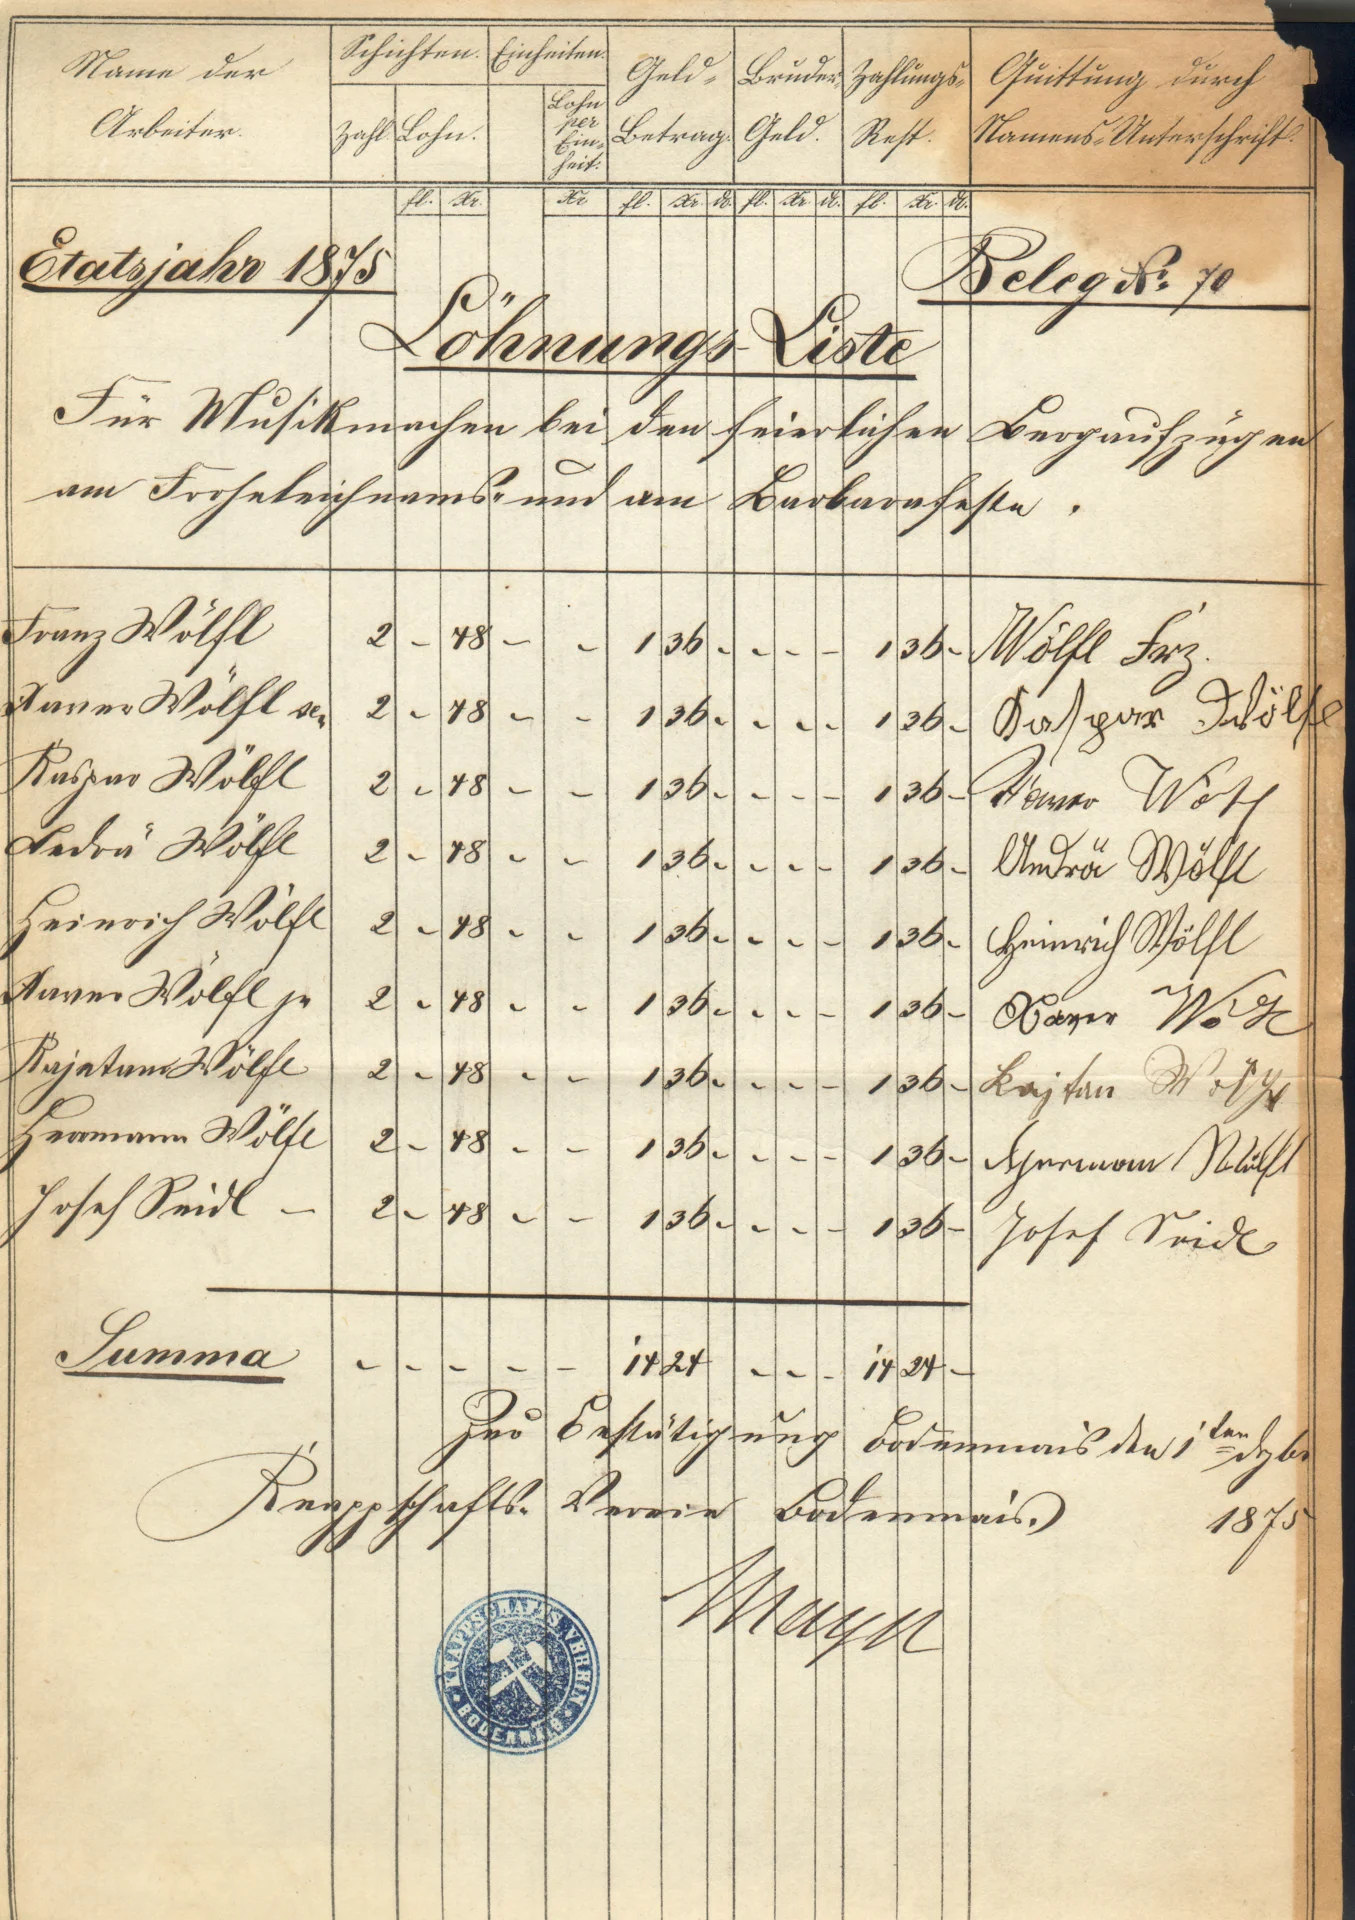 Name der Arbeiter. Schichten. Einheiten. Geld-Betrag. Bruder-Geld. Zahlungs-Rest. Quittung durch Namens-Unterschrift.
Zahl Lohn. Lohn per Ein-heit.
fl. Xr. Xr fl. Xr. dl. fl. Xr dl. fl. Xr. dl.
Etatsjahr 1875 Beleg No. 70
Löhnungs-Liste
Für Musikmachen bei den feierlichen Bergaufzügen
am Frohnleichnams- und am Barbarafeste.
Franz Wölfl 2 - 48 - - 1 36 - - - - 1 36 - Wölfl Frz.
Xaver Wölfl sen 2 - 48 - - 1 36 - - - - 1 36 - Kaspar Wölfl
Kaspar Wölfl 2 - 48 - - 1 36 - - - - 1 36 - Xaver Wölfl
Andrä Wölfl 2 - 48 - - 1 36 - - - - 1 36 - Andrä Wölfl
Heinrich Wölfl 2 - 48 - - 1 36 - - - - 1 36 - Heinrich Wölfl
Xaver Wölfl jr 2 - 48 - - 1 36 - - - - 1 36 - Xaver Wölfl
Kajetan Wölfl 2 - 48 - - 1 36 - - - - 1 36 - Kajtan Wölfl
Hermann Wölfl 2 - 48 - - 1 36 - - - - 1 36 - Herman Wölfl
Josef Seidl - 2 - 48 - - 1 36 - - - - 1 36 - Josef Seidl
Summa - - - - - 14 24 - - - 14 24 -
Zur Bestätigung Bodenmais den 1ten Dzbr
Knappschafts-Verein Bodenmais. 1875
KNAPPSCHAFTSVEREIN
BODENMAIS